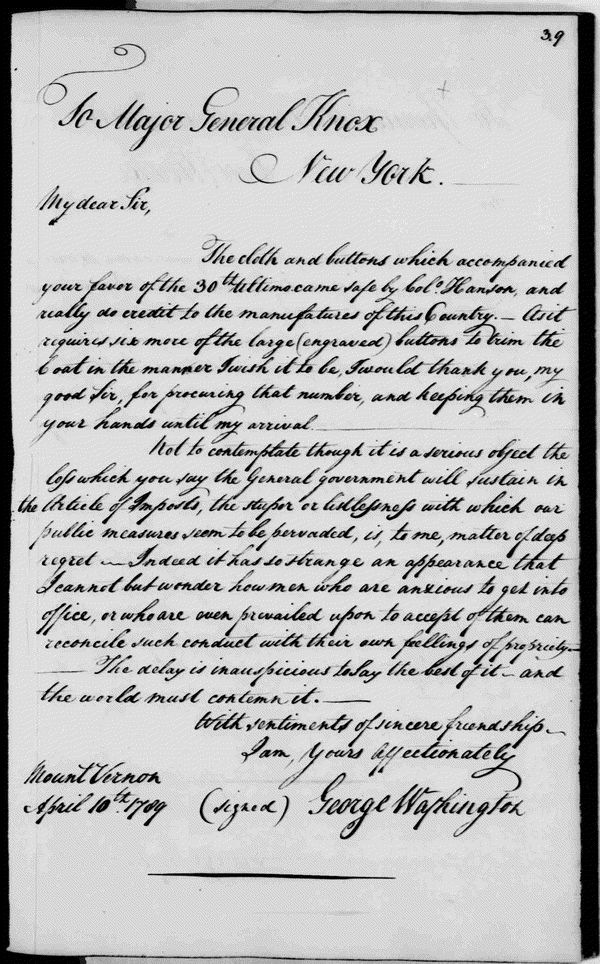 39
To Major General Knox
New York.
My dear Sir,
The cloth and buttons which accompanied
your favor of the 30th Ultimo came safe by Colo. Hanson, and
really do credit to the manufatures of this Country. — As it
requires six more of the large (engraved) buttons to trim the
Coat in the manner I wish it to be, I would thank you, my
good Sir, for procuring that number, and keeping them in
your hands until my arrival
Not to contemplate though it is a serious object the
loss which you say the General government will sustain in
the Article of Imposts, the stupor or listlessness with which our
public measures seem to be pervaded, is, to me, matter of deep
regret — Indeed it has so strange an appearance that
I cannot but wonder how men who are anxious to get into
office, or who are even prevailed upon to accept of them can
reconcile such conduct with their own feellings of propriety —
— The delay is inauspicious to say the best of it — and
the world must contemn it. —
With sentiments of sincere friendship —
I am, Yours Affectionately
Mount Vernon
April 10th. 1789 (signed) George Washington